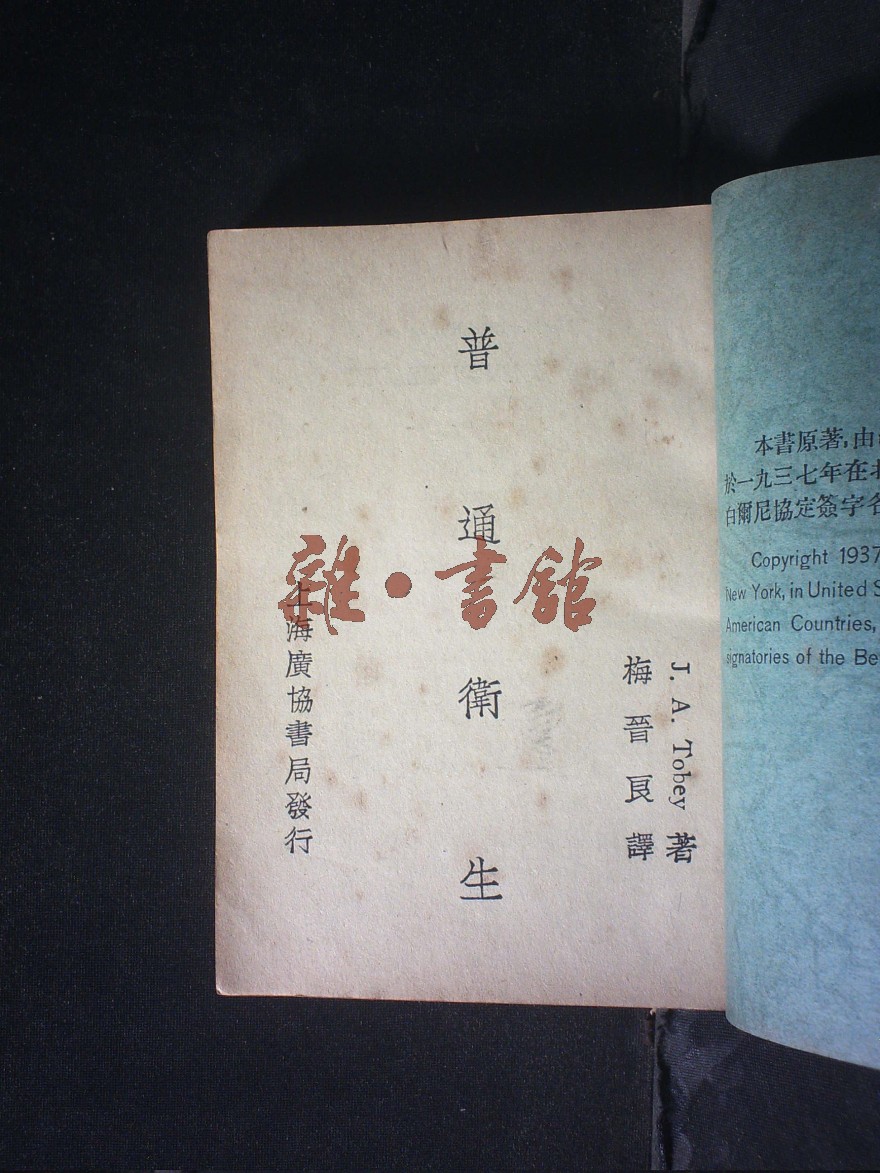 J. A. Tobey 著
梅晉良譯
普通衛生
上海廣協書局發行
雜•書館
本書原著,由
於一九三七年在
白爾尼協定簽字各
Copyright 1937
New York, in United S
American Countries,
signatories of the Be